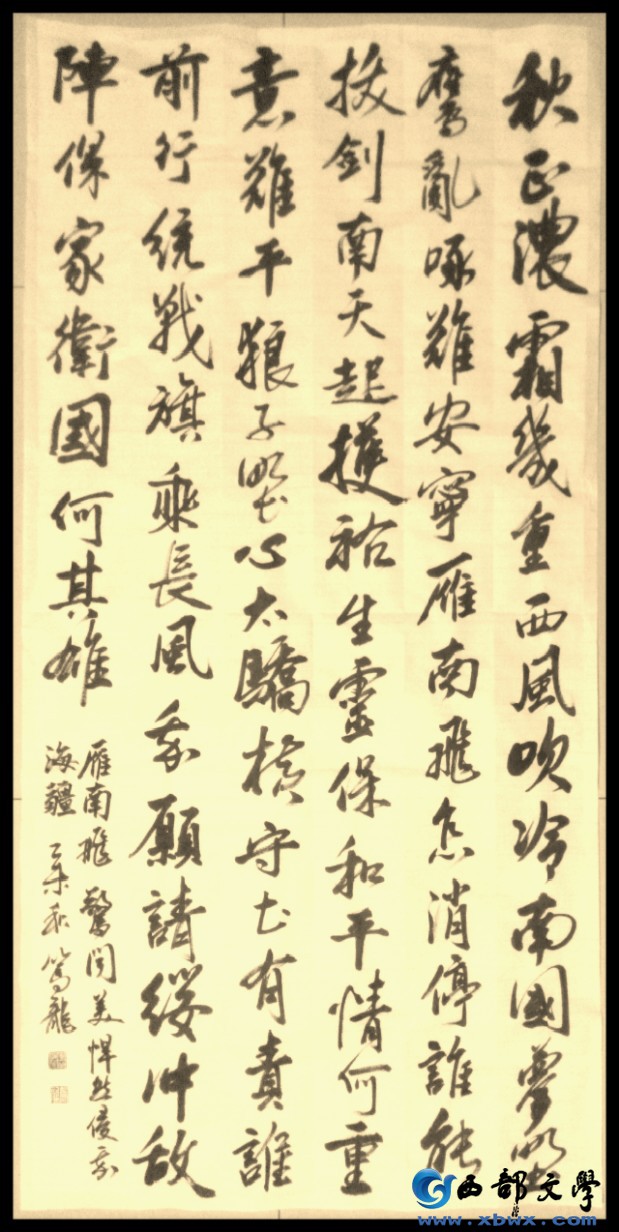 秋正濃霜幾重西風吹冷南國夢野
鷹亂啄難安寧雁南飛怎消停誰能
拔劍南天起護祐生靈保和平情何重
意難平狼子野心太驕橫守土有責誰
前行統戰旗乘長風我願請纓沖敵
陣保家衛國何其雄
雁南飛 驚聞美悍然侵我
海疆 乙未秋 篤龍
西部文學
www.xbwx.com